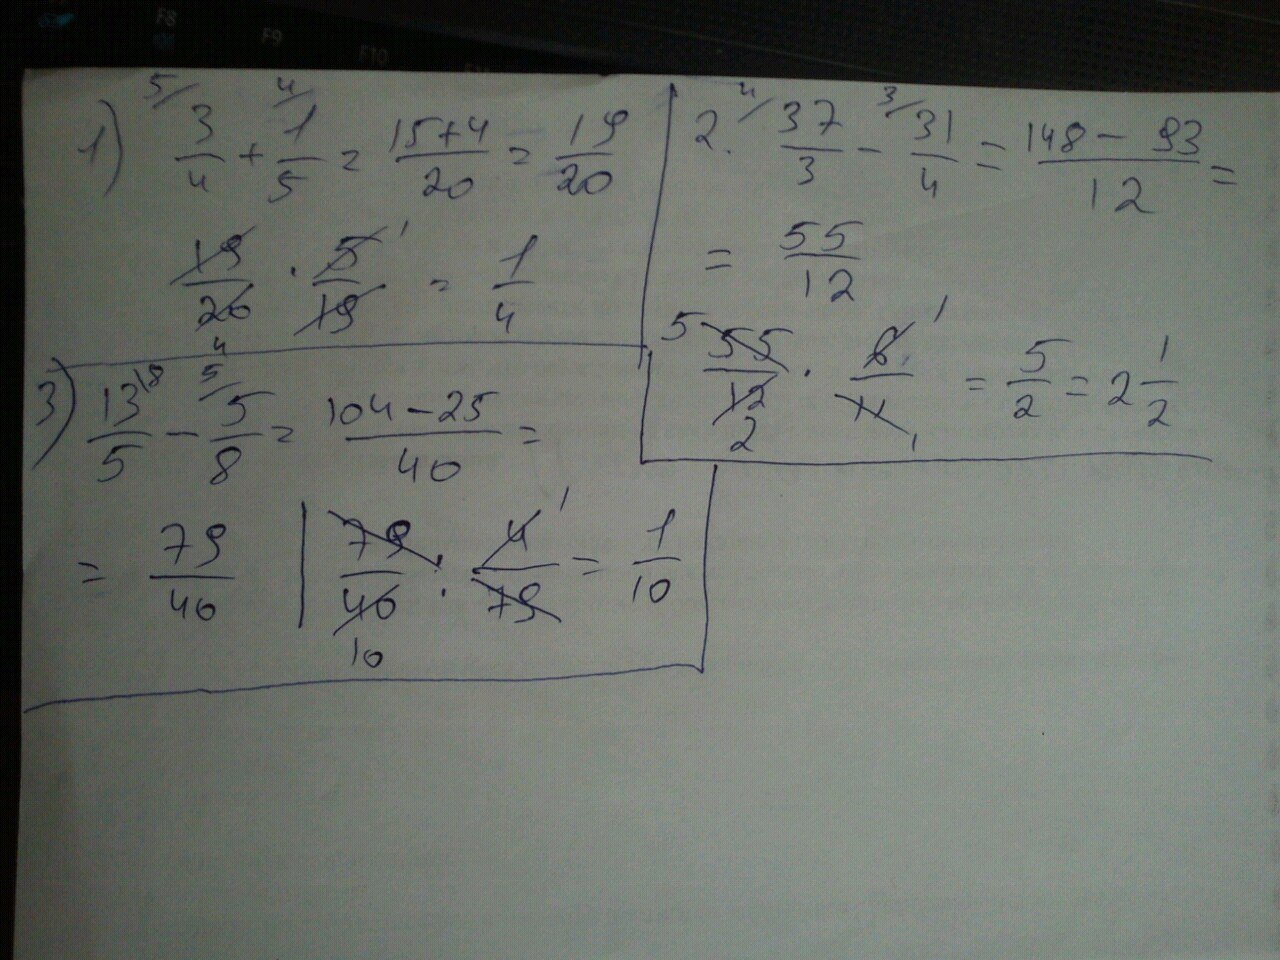 F8
F9
F10
1) 5/ 3/4 + 4/ 1/5 = 15+4/20 = 19/20
19/20 · 5/19 1 = 1/4
4
2. 4/ 37/3 - 3/ 31/4 = 148 - 93/12 =
= 55/12
5 55/12 2 · 6/11 1 1 = 5/2 = 2 1/2
3) 13/5 18 - 5/ 5/8 = 104 - 25/40 =
= 79/40 | 79/40 10 · 4/79 1 = 1/10